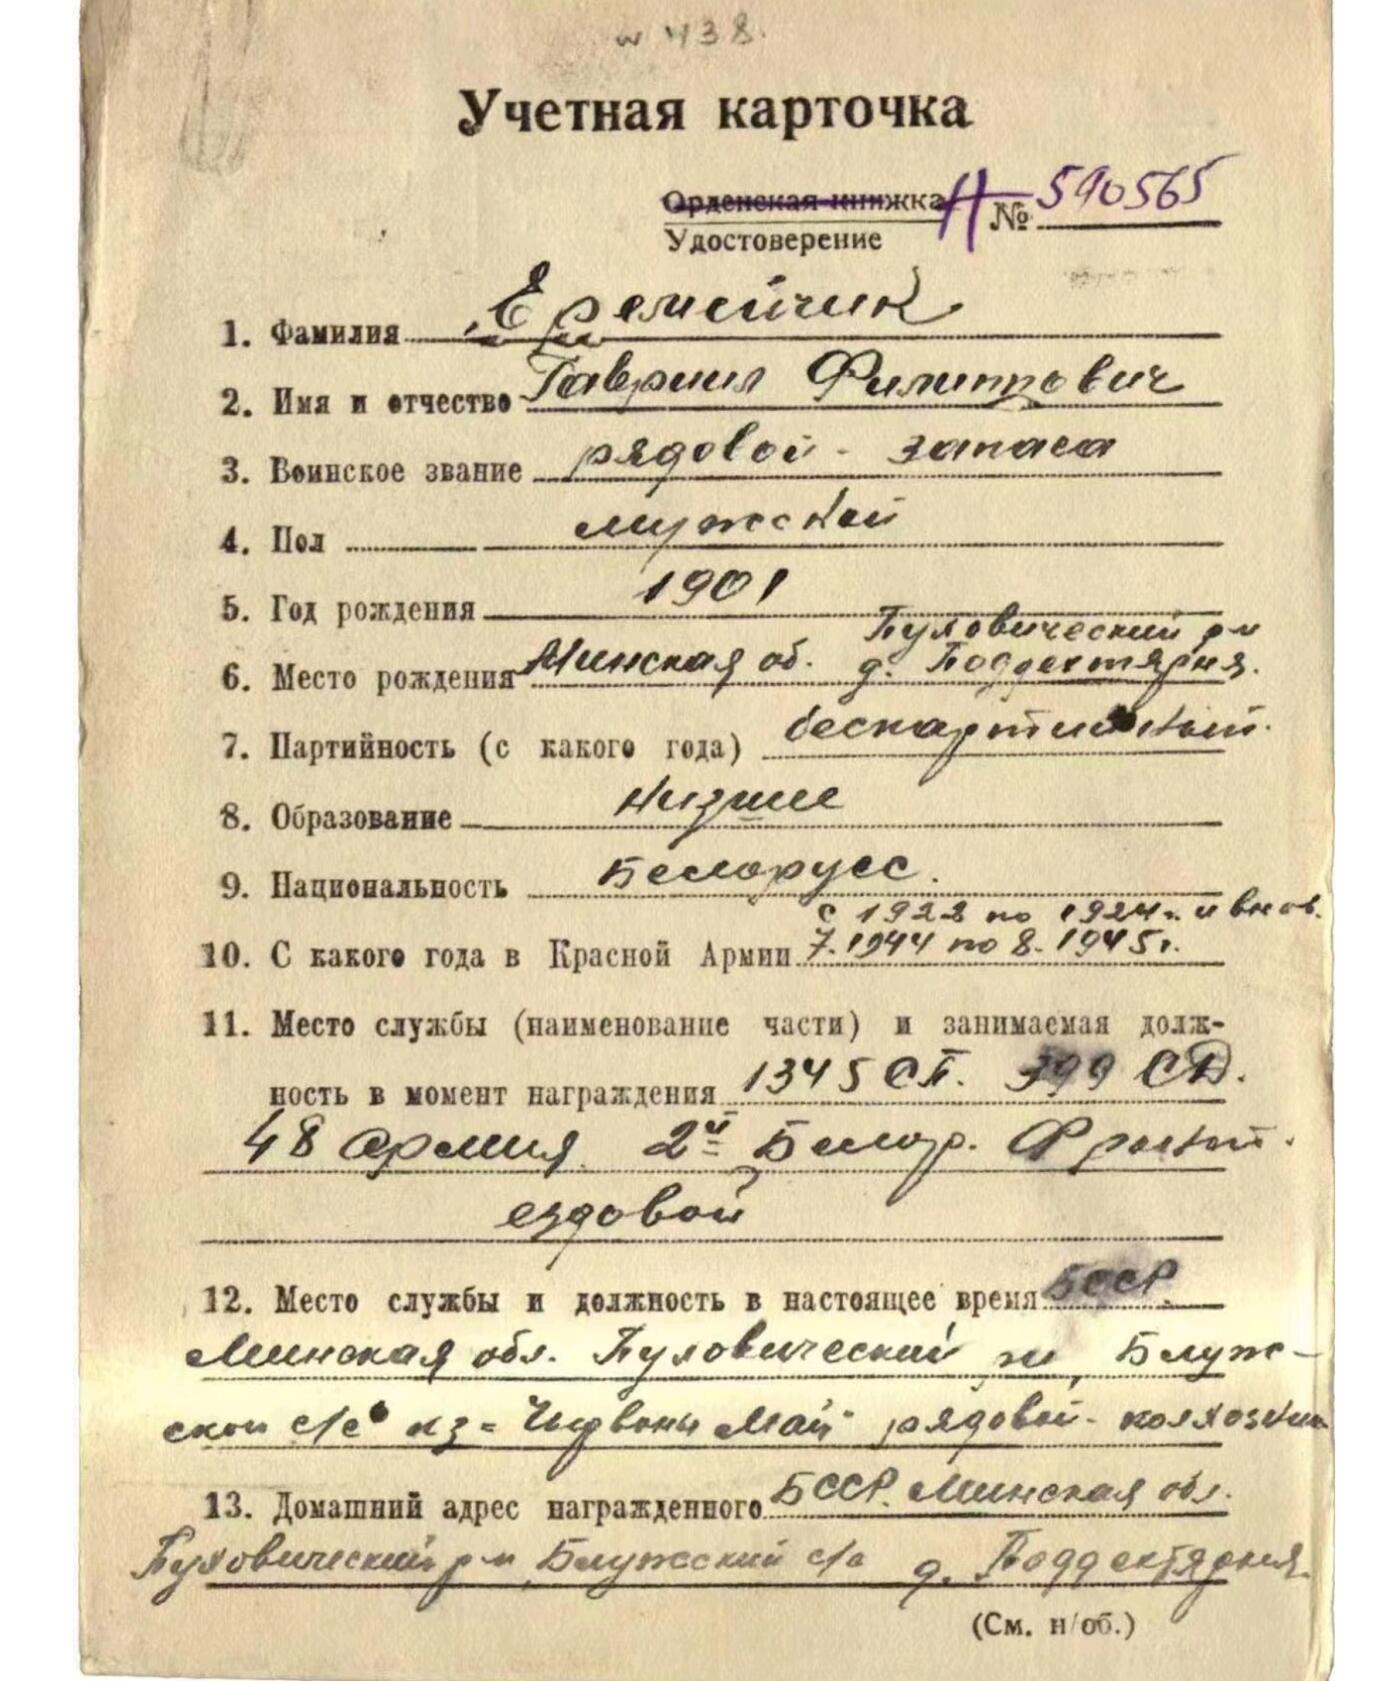 438.
Учетная карточка
Орденская книжка
Удостоверение Н № 590565
1. Фамилия Еремейчик
2. Имя и отчество Гавриил Филиппович
3. Воинское звание рядовой - запаса
4. Пол мужской
5. Год рождения 1901
Пуховический р-н
6. Место рождения Минская об. д. Поддегтярня.
7. Партийность (с какого года) беспартийный.
8. Образование низшее
9. Национальность Белорусс.
с 1922 по 1924г. и внов.
10. С какого года в Красной Армии 7.1944 по 8.1945г.
11. Место службы (наименование части) и занимаемая долж-
ность в момент награждения 1345 СП. 399 СД.
48 армия 2й Белор. Фронт.
ездовой
12. Место службы и должность в настоящее время БССР
Минская обл. Пуховический рн, Блуж-
ской с/с кз= Чырвоны Май" рядовой - колхозник
13. Домашний адрес награжденного БССР. Минская обл.
Пуховический р-н, Блужский с/с д. Поддектярня.
(См. н/об.)